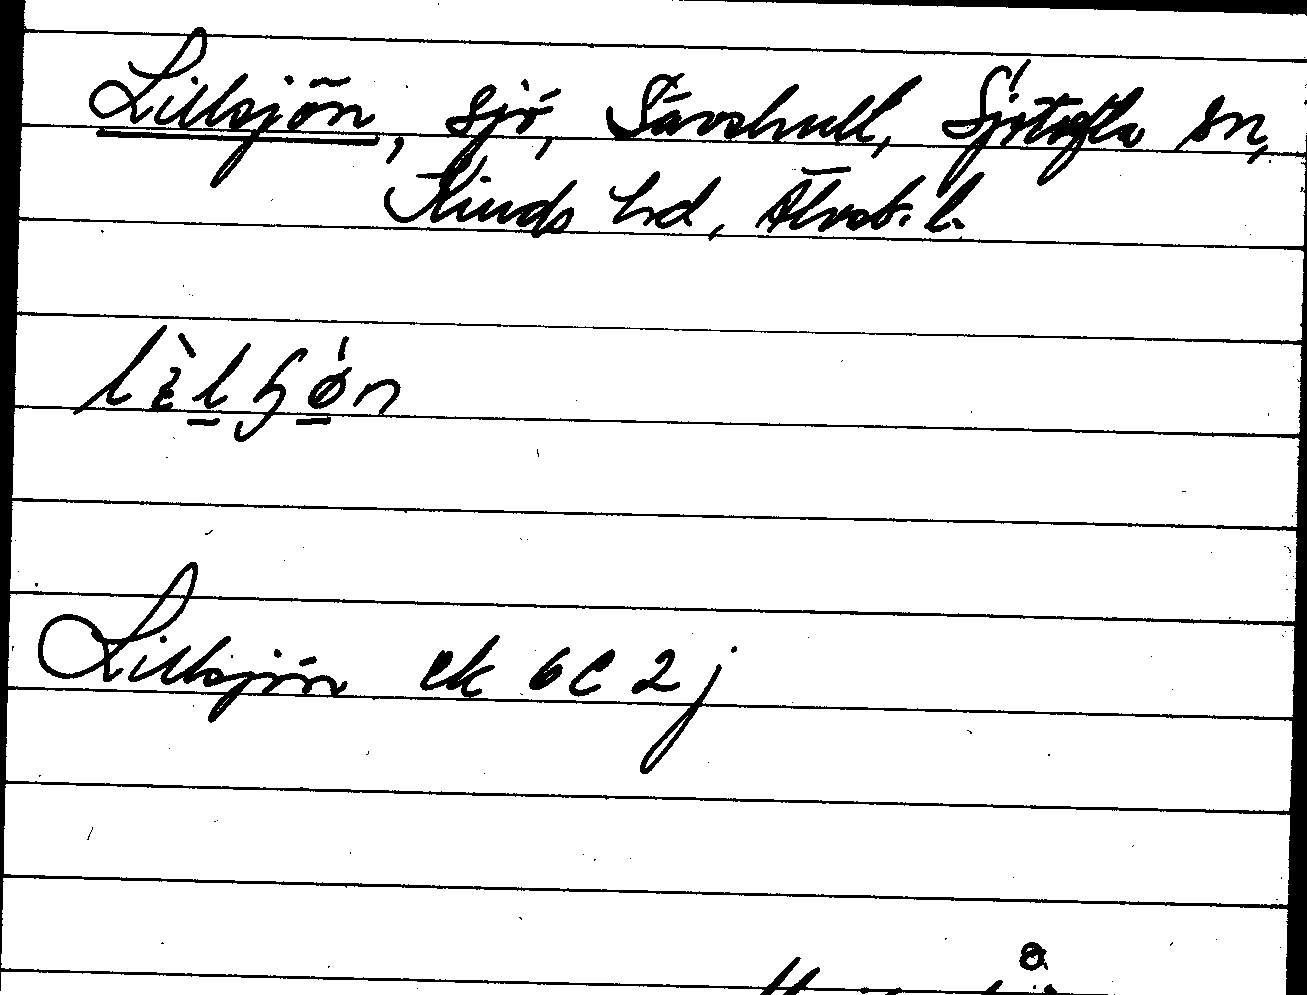 Lillsjön, sjö, Sävshult, Sjötofta sn,
Kinds hd, Älvsb. l.
Lillsjön ek 6C 2j